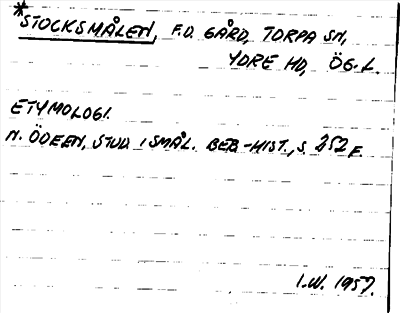 *STOCKSMÅLEN, F.D. GÅRD, TORPA SN,
YDRE HD, ÖG.L.
ETYMOLOGI.
N. ÖDEEN, STUD. I SMÅL. BEB-HIST., S. 252 F.
I.W. 1957.